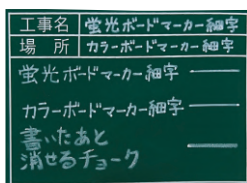 工事名 蛍光ボードマーカー細字
場所 カラーボードマーカー細字
蛍光ボードマーカー細字
カラーボードマーカー細字
書いたあと
消せるチョーク